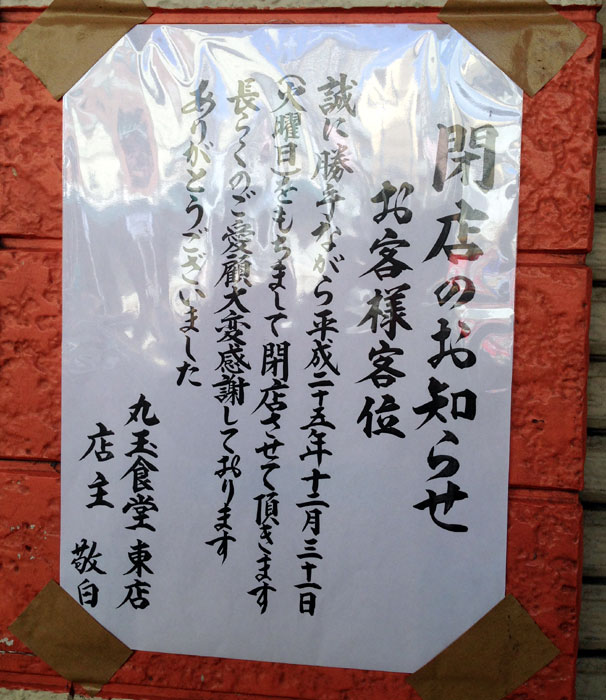 閉店のお知らせ
お客様客位
誠に勝手ながら平成二十五年十二月三十一日
(火曜日)をもちまして閉店させて頂きます
長らくのご愛顧大変感謝しております
ありがとうございました
丸玉食堂 東店
店主 敬白